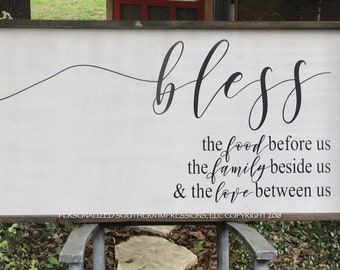 bless
the food before us
the family beside us
& the love between us
PERSONALIZED SOUTHERN IMPRESSIONS, LLC COPYRIGHT 2018